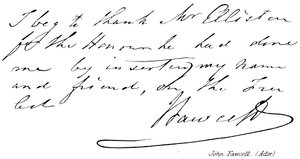 I beg to thank Mr Elliston
for the Honour he had done
me by inserting my name
and friend, on the Free
List
Fawcett
John Fawcett. (Actor)